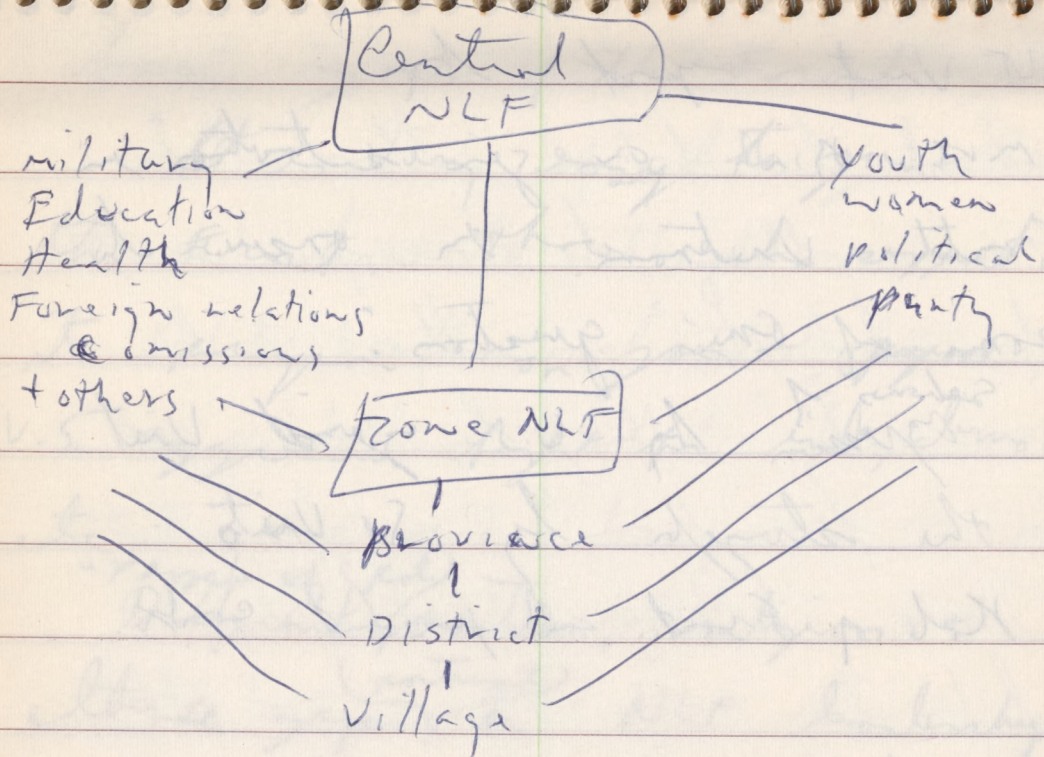 Central
NLF
military
Education
Health
Foreign relations
Comissions
+ others
youth
women
political
party
Zone NLF
Province
District
Village